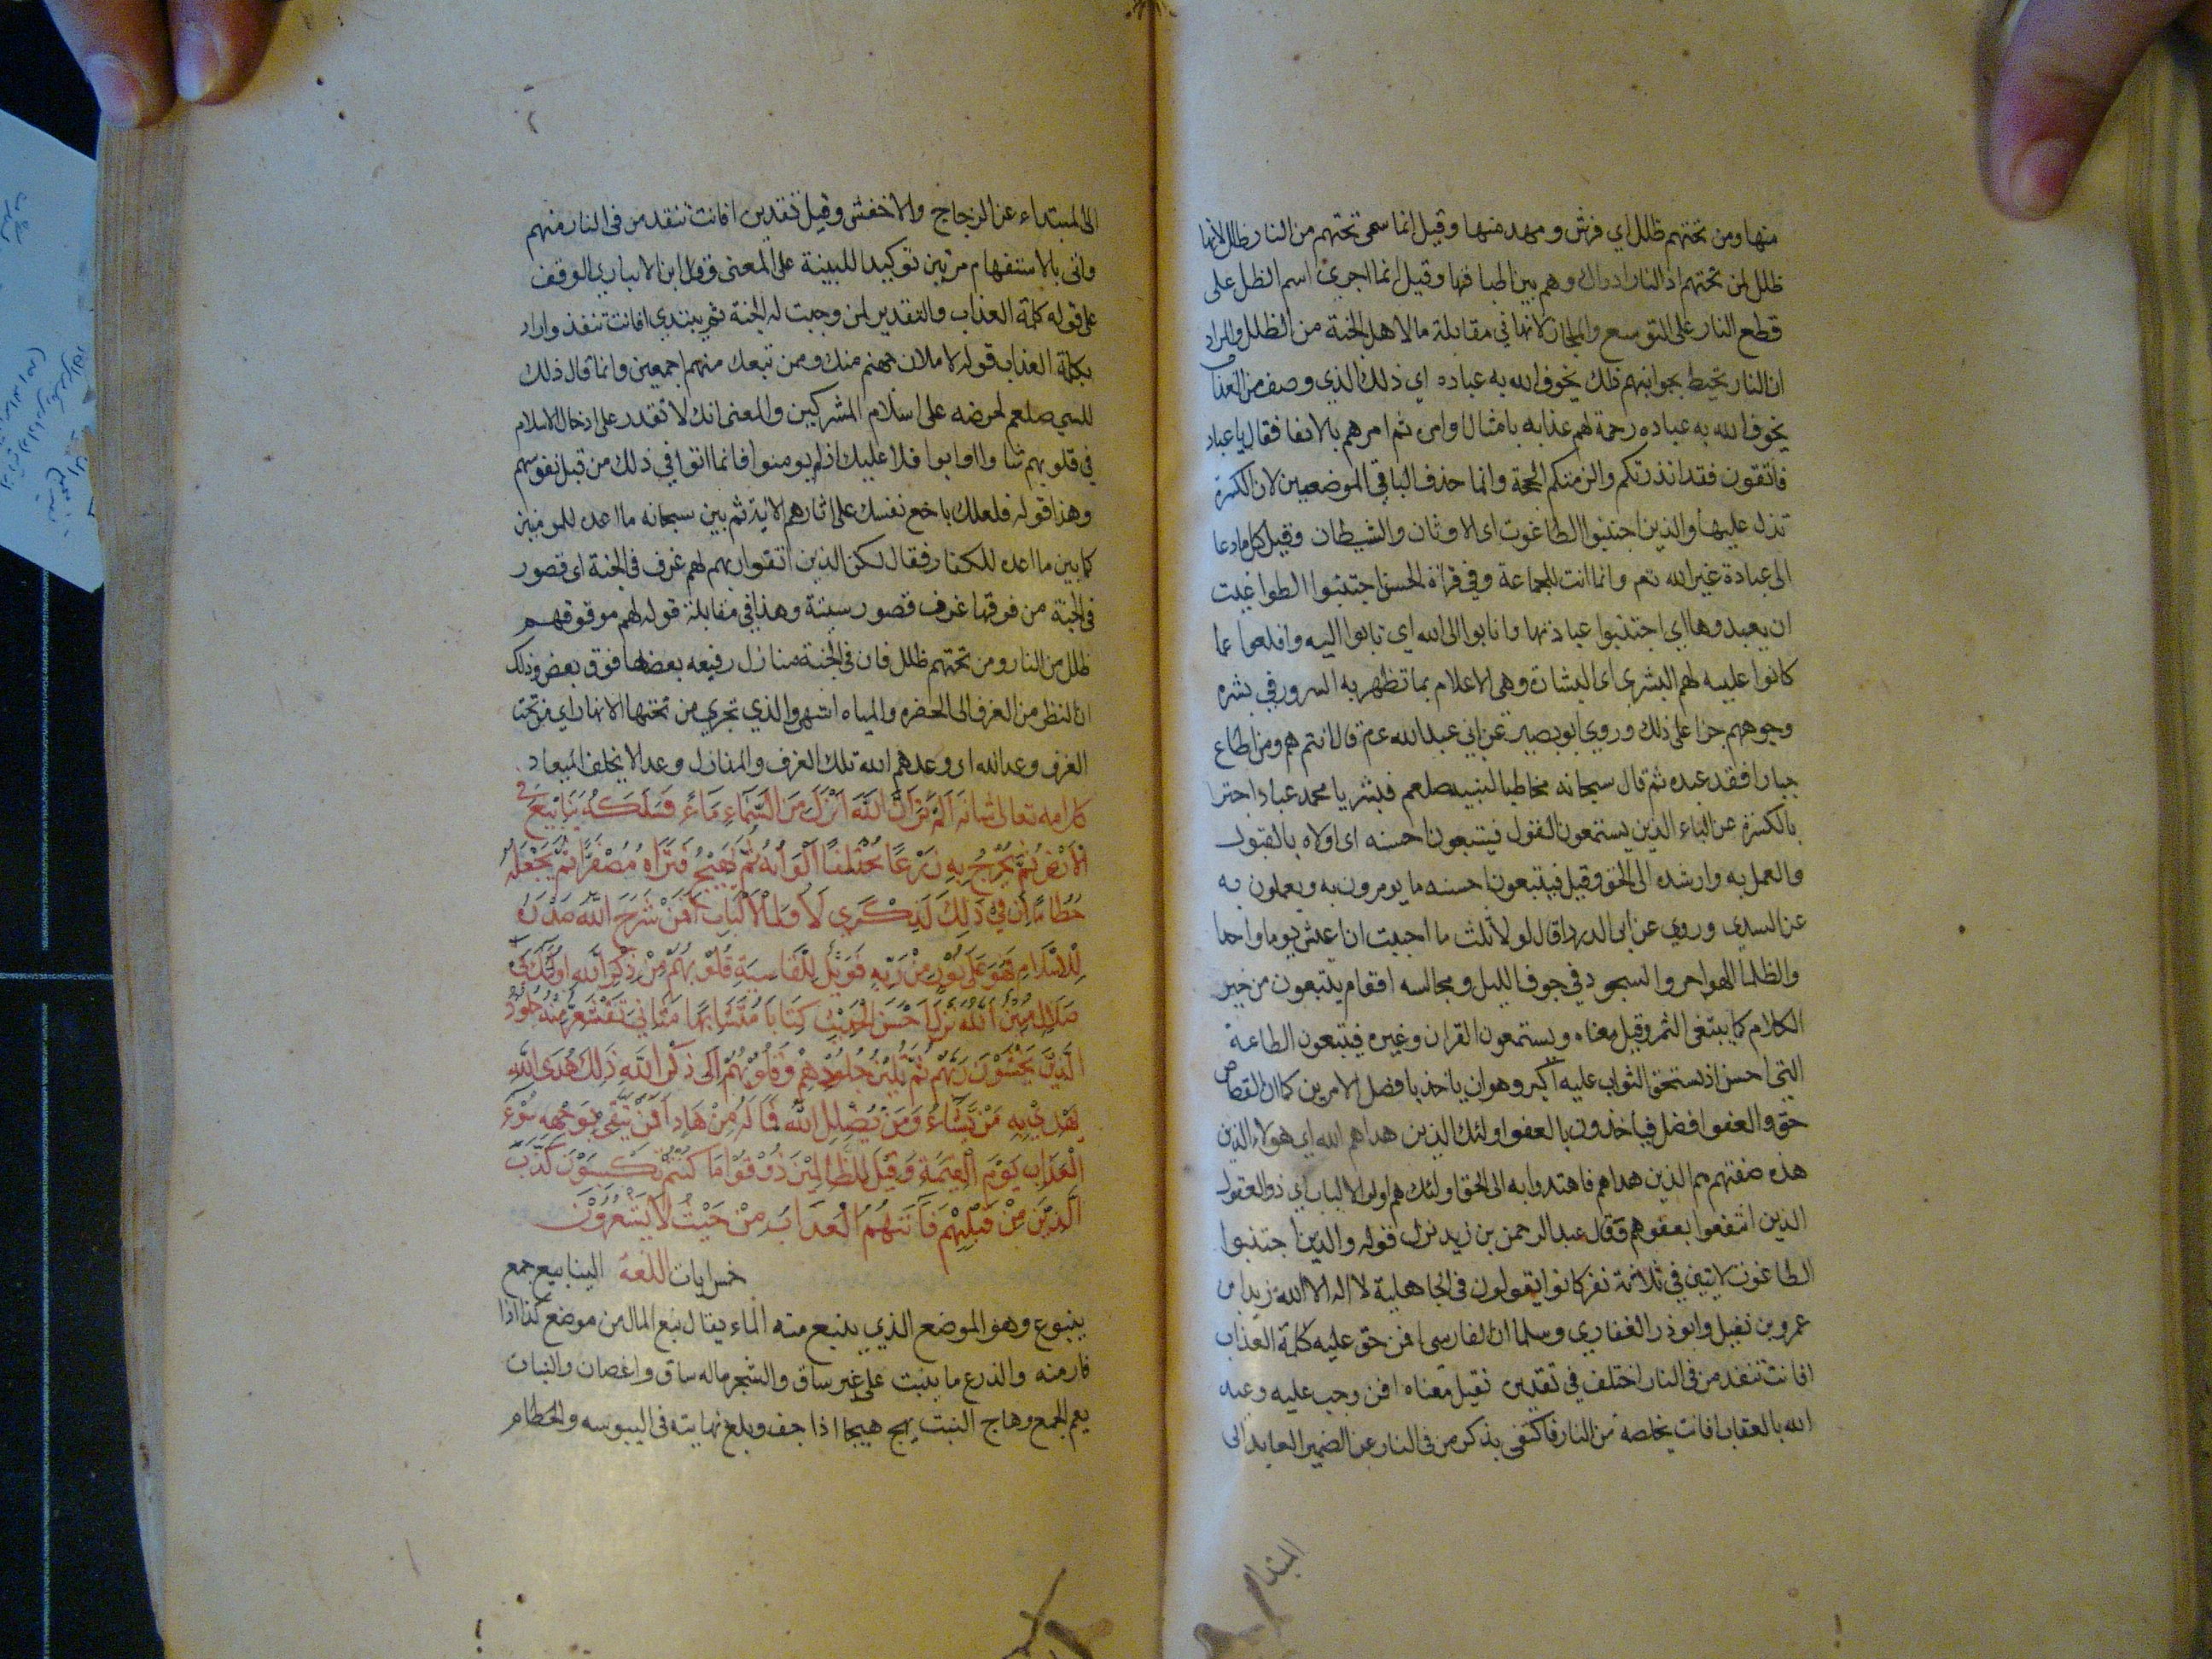 منها ومن تحتهم ظلل اي فرش ومهد منها وقيل انما سمى تحتهم من النار ظلل لانها
ظلل لمن تحتهم اذ النار ادراك وهم بين اطباقها وقيل انما اجري اسم الظل على
قطع النار على التوسع والمجاز لانها في مقابلة ما لاهل الجنة من الظلل والمراد
ان النار تحيط بجوانبهم ذلك يخوف الله به عباده اي ذلك الذي وصف من العذاب
يخوف الله به عباده رحمة لهم عذابه بامثال وامره ثم امرهم بالاتقا فقال يا عباد
فاتقون فقد انذرتكم والزمتكم الحجة وانما حذف اليا في الموضعين لان الكسرة
تدل عليها والذين اجتنبوا الطاغوت اى الاوثان والشيطان وقيل كل ما دعا
الى عبادة غير الله تعم وانما انت للجماعة وفي قراة الحسن اجتنبوا الطواغيت
ان يعبدوها اي اجتنبوا عبادتها وانابوا الى الله اي تابوا اليه واقلعوا عما
كانوا عليه لهم البشرى اى البشارة وهي الاعلام بما تظهر به السرور في بشره
وجوههم جزا على ذلك وروي ابو بصير عن ابي عبد الله ع م قال انتم هم ومن اطاع
جبارا فقد عبده ثم قال سبحانه مخاطبا لنبيه صلعم فبشر يا محمد عباد اجتزا
بالكسرة عن الياء الذين يستمعون القول فيتبعون احسنه اى اولاه بالقبول
والعمل به وارشده الى الحق وقيل فيتبعون احسنه ما يومرون به ويعملون به
عن السدي وروي عن ابى الدردا قال لولا ثلث ما احببت ان اعيش يوما واحدا
والظلما الهواجر والسجود في جوف الليل ومجالسه اقوام يتبعون من خير
الكلام كما يبتغى الثمر وقيل معناه ويستمعون القران وغيره فيتبعون الطاعة
التي احسن اذ يستحق الثواب عليه اكبر وهو ان ياخذ بافضل الامرين كما ان القصاص
حق والعفو افضل فياخذون بالعفو اولئك الذين هداهم الله اي هولاء الذين
هذه صفتهم هم الذين هداهم فاهتدوا به الى الحق واولئك هم اولوا الالباب اي ذو العقول
الذين انتفعوا بعقولهم وقال عبد الرحمن بن زيد نزل قوله والذين اجتنبوا
الطاغوت لايتين في ثلاثة نفر كانوا يقولون في الجاهلية لا اله الا الله زيد بن
عمرو بن نفيل وابو ذر الغفاري وسلمان الفارسى افمن حق عليه كلمة العذاب
افانت تنقذ من في النار اختلف في تقدين فقيل معناه افمن وجب عليه وعيد
الله بالعقاب افانت يخلصه من النار فاكتفى بذكر من في النار عن الضمير العايد الى
المبتدا
الى المبتداء عن الزجاج والاخفش وقيل تقدين افانت تنقد من في النار منهم
واتى بالاستفهام مرتين توكيدا للبينة على المعنى وقال ابن الانباري الوقف
على قوله كلمة العذاب والتقدير لمن وجبت له الجنة ثم يبتدي افانت تنقذ واراد
بكلمة العذاب قوله لاملان جهنم منك وممن تبعك منهم اجمعين وانما قال ذلك
للنبي صلعم لحرضه على اسلام المشركين والمعنى انك لا تقدر على ادخال الاسلام
في قلوبهم شا وا او ابوا فلا عليك اذ لم يومنوا فانما اتوا في ذلك من قبل نفوسهم
وهذا قوله فلعلك باخع نفسك على اثارهم الاية ثم بين سبحانه ما اعده للمومنين
كما بين ما اعده للكفار فقال لكن الذين اتقوا ربهم لهم غرف في الجنة اى قصور
في الجنة من فوقها غرف قصور سنية وهذا في مقابلة قوله لهم من فوقهم
ظلل من النار ومن تحتهم ظلل فان في الجنة منازل رفيعه بعضها فوق بعض وذلك
ان النظر من الغرف الى الخضره والمياه اشهى والذي تجري من تحتها الانهار اي من تحت
الغرف وعد الله اى وعدهم الله تلك الغرف والمنازل وعدا لا يخلف الميعاد
كلامه تعالى شانه اَلَمْ تَرَ اَنَّ اللَّهَ اَنْزَلَ مِنَ السَّمَاءِ مَاءً فَسَلَكَهُ يَنَابِيْعَ في
الْاَرْضِ ثُمَّ يُخْرِجُ بِهِ زَرْعًا مُخْتَلِفًا اَلْوَانُهُ ثُمَّ يَهِيْجُ فَتَرَاهُ مُصْفَرًّا ثُمَّ يَجْعَلُهُ
حُطَامًا اِنَّ فِي ذَلِكَ لَذِكْرَى لِاُولِى الْاَلْبَابِ اَفَمَنْ شَرَحَ اللَّهُ صَدْرَهُ
لِلْاِسْلَامِ فَهُوَ عَلَى نُوْرٍ مِنْ رَبِّهِ فَوَيْلٌ لِلْقَاسِيَةِ قُلُوْبُهُمْ مِنْ ذِكْرِ اللَّهِ اُولَئِكَ فِى
ضَلَالٍ مُبِيْنٍ اَللَّهُ نَزَّلَ اَحْسَنَ الْحَدِيْثِ كِتَابًا مُتَشَابِهًا مَثَانِيَ تَقْشَعِرُّ مِنْهُ جُلُوْدُ
الَّذِيْنَ يَخْشَوْنَ رَبَّهُمْ ثُمَّ تَلِيْنُ جُلُوْدُهُمْ وَقُلُوْبُهُمْ اِلَى ذِكْرِ اللَّهِ ذَلِكَ هُدَى اللَّهِ
يَهْدِيْ بِهِ مَنْ يَشَاءُ وَمَنْ يُضْلِلِ اللَّهُ فَمَا لَهُ مِنْ هَادٍ اَفَمَنْ يَتَّقِى بِوَجْهِهِ سُوْءَ
الْعَذَابِ يَوْمَ الْقِيَمَةِ وَقِيْلَ لِلظَّالِمِيْنَ ذُوْقُوْا مَا كُنْتُمْ تَكْسِبُوْنَ كَذَّبَ
الَّذِيْنَ مِنْ قَبْلِهِمْ فَاَتَتْهُمُ الْعَذَابُ مِنْ حَيْثُ لَا يَشْعُرُوْنَ
خمس ايات اللغة الينابيع جمع
ينبوع وهو الموضع الذي ينبع منه الماء يقال نبع المال من موضع كذا اذا
فار منه والذرع ما ينبت على غير ساق والشجر ماله ساق واغصان والنبات
يعم الجمع وهاج النبت يهج هيجا اذا جف وبلغ نهايته في اليبوسه والحطام